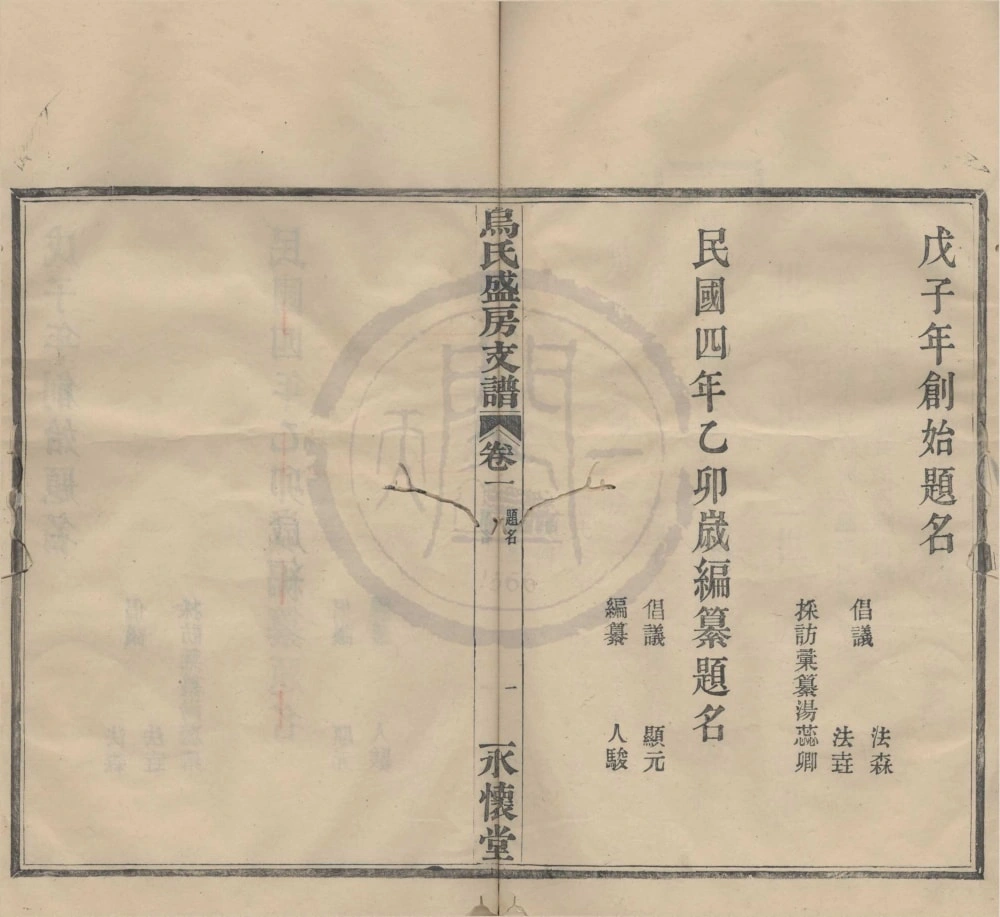 戊子年創始題名
法森
倡議
法垚
採訪彙纂湯蕊卿
民國四年乙卯歲編纂題名
倡議 顯元
編纂 人駿
烏氏盛房支譜
卷一
題名
一
永懷堂